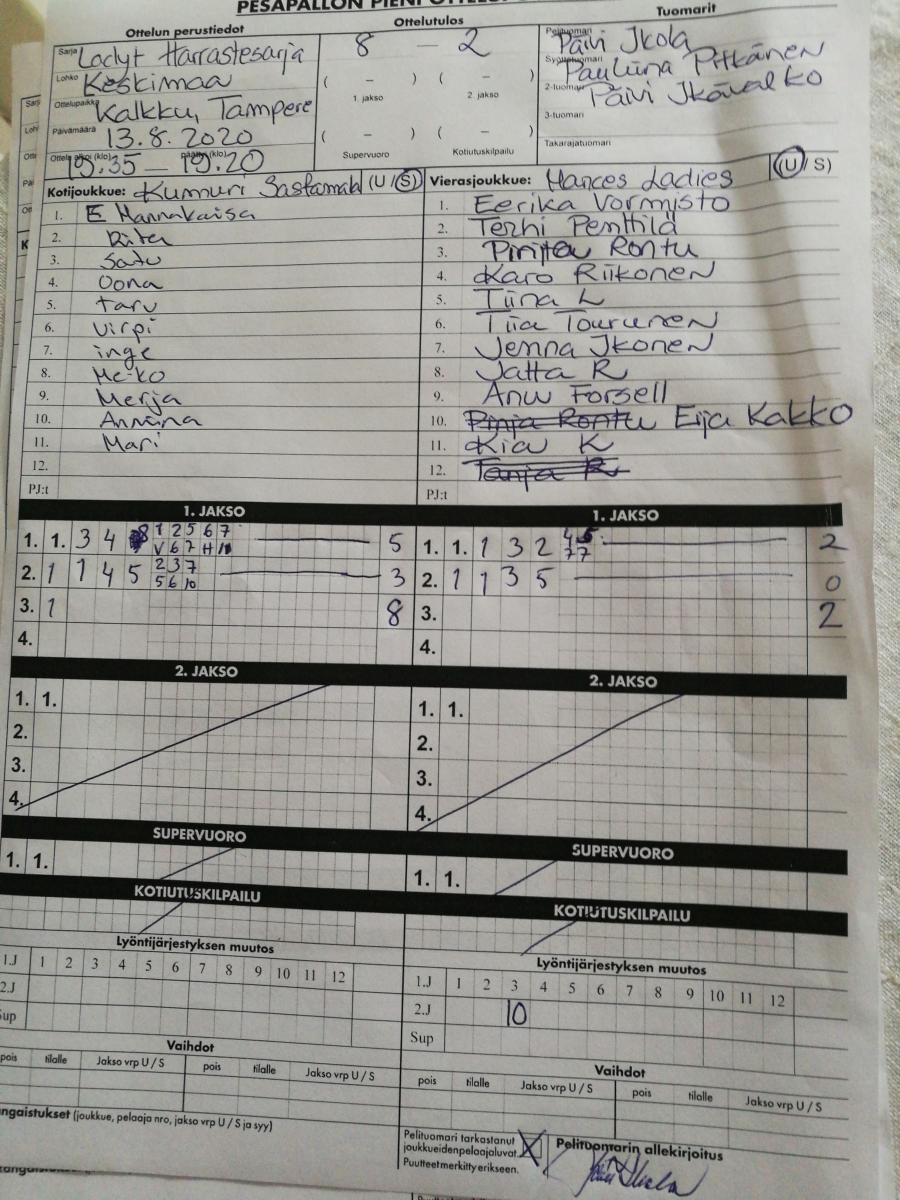 PESÄPALLON PIENI
Ottelun perustiedot
Sarja Ladyt Harrastesarja
Lohko Keskimaa
Ottelupaikka Kalkku, Tampere
Päivämäärä 13.8.2020
Ottelu alkoi (klo) päättyi (klo) 19.20
Ottelutulos
8 – 2
( – ) ( – )
1. jakso 2. jakso
( – ) ( – )
Supervuoro Kotiutuskilpailu
Tuomarit
Pelituomari Päivi Ikola
Syöttötuomari Pauliina Pitkänen
2-tuomari Päivi
3-tuomari
Takarajatuomari
Kotijoukkue: Kumuri Sastamala (U / S)
1. E Mannakaisa
2. Riita
3. Satu
4. Oona
5. Taru
6. Virpi
7. inge
8.
9. Merja
10. Anniina
11. Mari
12.
PJ:t
Vierasjoukkue: Mances Ladies (U / S)
1. Eerika Vormisto
2. Terhi Penttilä
3. Rontu
4. Karo Riikonen
5. Tiina L
6. Tiia Tourunen
7. Jenna Ikonen
8. Jatta R
9. Anu Forsell
10. Pinja Rontu Eija Kakko
11. Kia K
12. Tanja R
PJ:t
1. JAKSO
1. 1. 3 4 8 1 2 5 6 7 5
V 6 7
2. 1 1 4 5 2 3 7 3
5 6 10
3. 1 8
4.
1. JAKSO
1. 1. 1 3 2 2
7 7
2. 1 1 3 5 0
3. 2
4.
2. JAKSO
1. 1.
2.
3.
4.
2. JAKSO
1. 1.
2.
3.
4.
SUPERVUORO
1. 1.
SUPERVUORO
1. 1.
KOTIUTUSKILPAILU
KOTIUTUSKILPAILU
Lyöntijärjestyksen muutos
1.J 1 2 3 4 5 6 7 8 9 10 11 12
2.J
Sup
Lyöntijärjestyksen muutos
1.J 1 2 3 4 5 6 7 8 9 10 11 12
2.J 10
Sup
Vaihdot
pois tilalle Jakso vrp U / S pois tilalle Jakso vrp U / S
Vaihdot
pois tilalle Jakso vrp U / S pois tilalle Jakso vrp U / S
ngaistukset (joukkue, pelaaja nro, jakso vrp U / S ja syy)
Pelituomari tarkastanut
joukkueidenpelaajaluvat. X
Puutteet merkitty erikseen.
Pelituomarin allekirjoitus